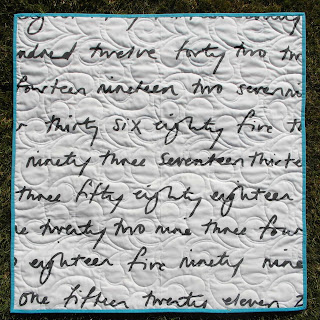 ndred twelve forty two tw
fourteen nineteen two seven
thirty six eighty five t
ninety three seventeen thirte
three fifty eighty eighteen
e twenty two nine three four
eighteen five ninety nine
one fifteen twenty eleven